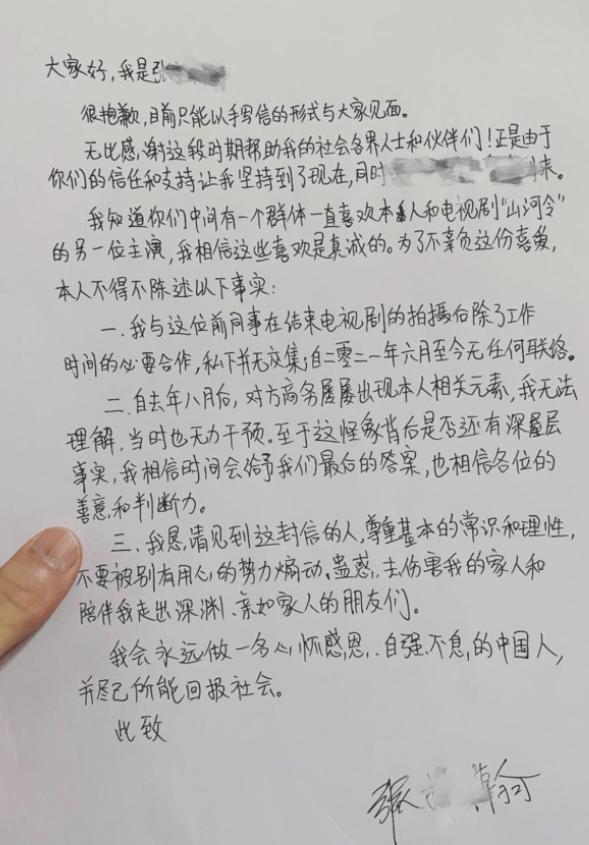 大家好，我是张
很抱歉，目前只能以手写信的形式与大家见面。
无比感谢这段时期帮助我的社会各界人士和伙伴们！正是由于
你们的信任和支持让我坚持到了现在，同时 到来。
我知道你们中间有一个群体一直喜欢本人和电视剧“山河令”
的另一位主演，我相信这些喜欢是真诚的。为了不辜负这份喜爱，
本人不得不陈述以下事实：
一．我与这位前同事在结束电视剧的拍摄后除了工作
时间的必要合作，私下并无交集；自二零二一年六月至今无任何联络。
二．自去年八月后，对方商务屡屡出现本人相关元素，我无法
理解，当时也无力干预。至于这怪象背后是否还有深层
事实，我相信时间会给予我们最后的答案，也相信各位的
善意和判断力。
三．我恳请见到这封信的人，尊重基本的常识和理性，
不要被别有用心的势力煽动、蛊惑，去伤害我的家人和
陪伴我走出深渊、亲如家人的朋友们。
我会永远做一名心怀感恩、自强不息的中国人，
并尽己所能回报社会。
此致
张 瀚